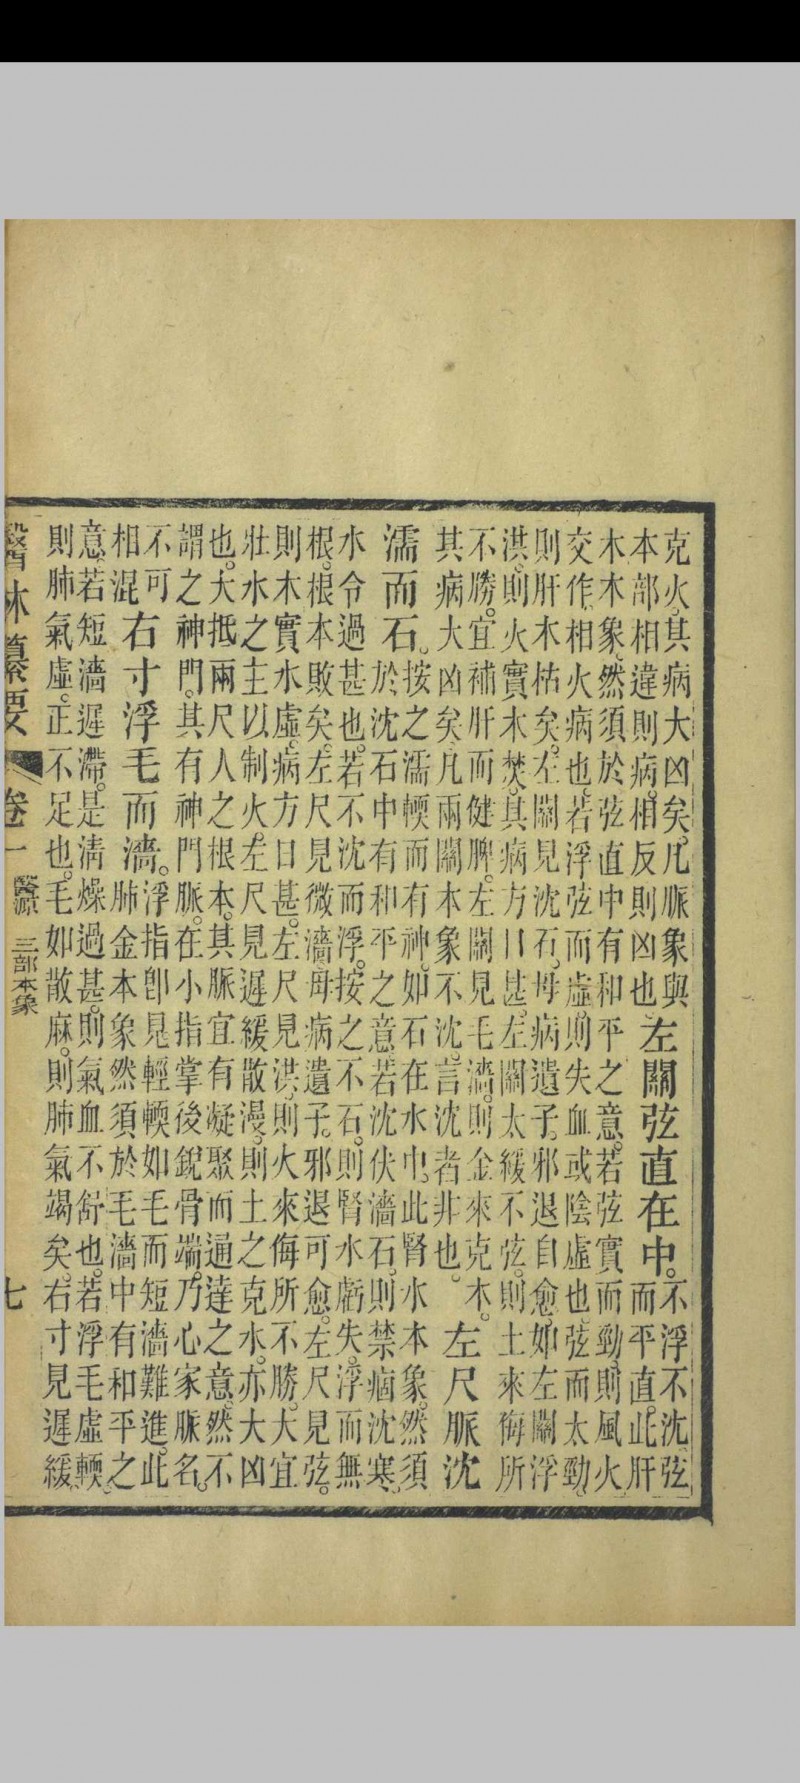 克火。其病大凶矣。凡脈象與
本部相違則病。相反則凶也
左關弦直在中。
不浮不沈弦
而平直。此肝
木木象。然須於弦直中有和平之意。若弦實而勁。則風火
交作。相火病也。若浮弦而虛。則失血或陰虛也。弦而太勁。
則肝木枯矣。左關見沈石。母病遺子。邪退自愈。如左關浮
洪。則火實木焚。其病方日甚。左關太緩不弦。則土來侮所
不勝。宜補肝而健脾。左關見毛濇。則金來克木。
其病大凶矣。凡兩關本象不沈。言沈者非也。
左尺脈沈
濡而石。
按之濡輭而有神。如石在水中。此腎水本象。然須
於沈石中有和平之意。若沈伏濇石。則禁痼沈寒。
水令過甚也。若不沈而浮。按之不石。則腎水虧失。浮而無
根。根本敗矣。左尺見微濇。母病遺子。邪退可愈。左尺見弦。
則木實水虛。病方日甚。左尺見洪。則火來侮所不勝。大宜
壯水之主以制火。左尺見遲緩散漫。則土之克水。亦大凶
也。大抵兩尺人之根本。其脈宜有凝聚而通達之意。然不
謂之神門。其有神門脈。在小指掌後銳骨端。乃心家脈名。
不可
相混
右寸浮毛而濇。
浮指卽見輕輭如毛而短濇難進。此
肺金本象然須於毛濇中有和平之
意。若短濇遲滯。是清燥過甚。則氣血不舒也。若浮毛虛輭。
則肺氣虛。正不足也。毛如散麻。則肺氣竭矣。右寸見遲緩
醫林纂要 卷一 醫源 三部本象 七